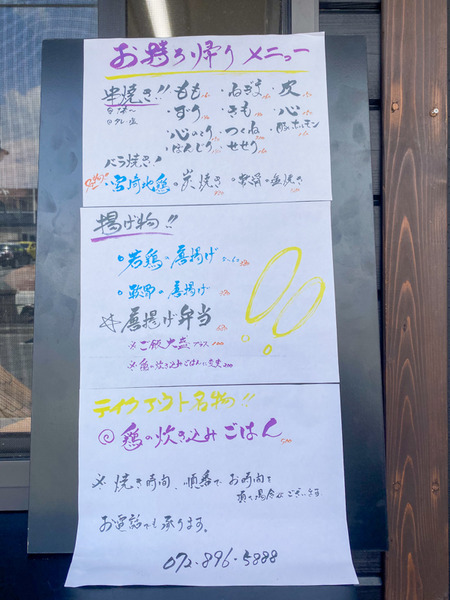 お持ち帰り メニュー
串焼き!! ・もも ・ねぎま ・皮
・ずり ・きも ・心
・心のこり ・つくね ・豚ホルモン
・ぼんじり ・せせり
バラ焼き!
・宮崎地鶏の炭焼き ・軟骨の塩焼き
揚げ物!!
◎若鶏の唐揚げ
◎軟骨の唐揚げ
唐揚げ弁当
※ご飯大盛 プラス100
※鶏の炊き込みごはんに変更200
テイクアウト名物!!
◎鶏の炊き込みごはん
※焼き時間、順番でお時間を
頂く場合がございます
お電話でも承ります。
072-896-5888